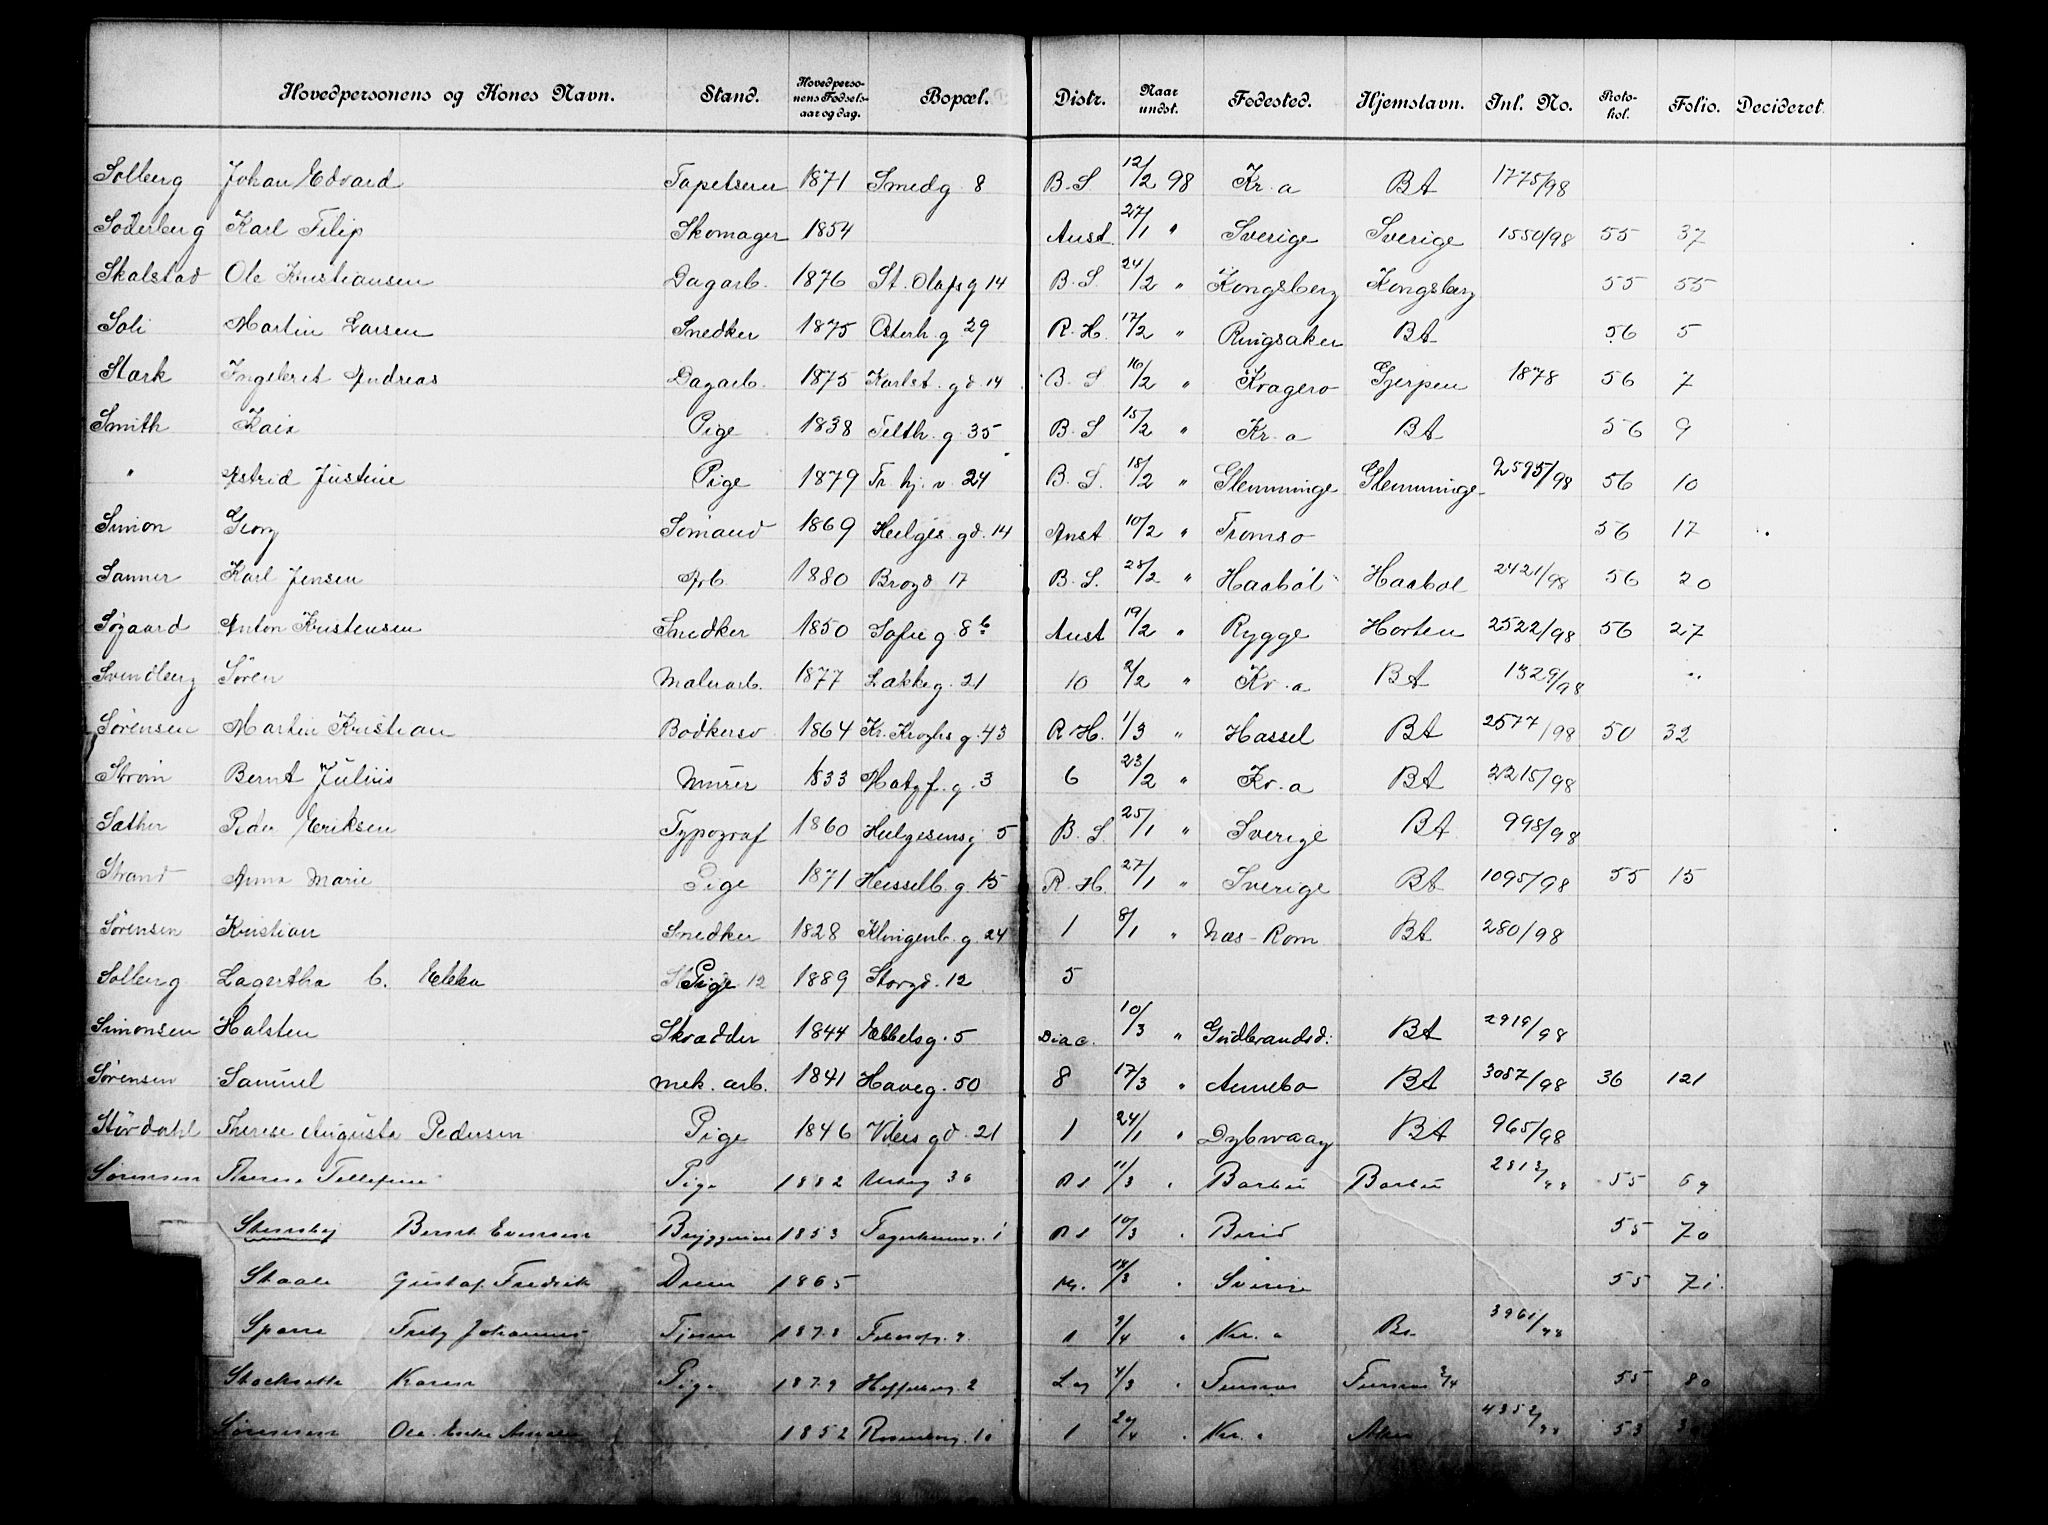 Hovedpersonens og Kones Navn. Stand. Hovedpersonens Fødselsaar og dag. Bopæl. Distr. Naar undst. Fødested. Hjemstavn. Inl. No. Protokol. Folio. Decideret.
Solberg Johan Edvard Tapetserer 1871 Smedg. 8 B.S 12/2 98 Kr.a BA 1775/98
Söderberg Karl Filip Skomager 1854 Anst 27/1 " Sverige Sverige 1550/98 55 37
Skalstad Ole Kristiansen Dagarb. 1876 St. Olafsg 14 B.S. 24/2 " Kongsberg Kongsberg 55 55
Soli Martin Larsen Snedker 1875 Osterh. g. 29 R.H. 17/2 " Ringsaker BA 56 5
Stark Ingebret Andreas Dagarb. 1875 Karlst. gd. 14 B.S 16/2 " Kragerø Gjerpen 1878 56 7
Smith Kaia Pige 1838 Telth. g. 35 B.S 15/2 " Kr.a BA 56 9
" Astrid Justine Pige 1879 Tr. hj. v. 24 B.S. 18/2 " Glemminge Glemminge 2595/98 56 10
Simon Georg Sømand 1869 Helges. gd. 14 Anst 10/2 " Tromsø 56 17
Sanner Karl Jensen Arb 1880 Brogd 17 B.S. 28/2 " Haabøl Haabøl 2421/98 56 20
Søgaard Anton Kristensen Snedker 1850 Sofieg. 8b Anst 19/2 " Rygge Horten 2522/98 56 27
Svindberg Søren Malerarb. 1877 Lakkeg. 21 10 2/2 " Kr.a BA 1329/98 "
Sørensen Martin Kristian Bødkersv 1864 Kr. Kroghs g. 43 R.H. 1/3 " Hassel BA 2577/98 50 32
Strøm Bernt Julius Murer 1833 Matzf. g. 3 6 23/2 " Kr.a BA 2215/98
Sæther Peder Eriksen Typograf 1860 Helgesensg 5 B.S. 25/1 " Sverige BA 998/98
Strand Anna Marie Pige 1871 Hesselb. g. 15 R.H. 27/1 " Sverige BA 1095/98 55 15
Sørensen Kristian Snedker 1828 Klingenb. g. 24 1 8/1 " Næs-Rom BA 280/98
Solberg Lagertha C. Ebba Pige 12 1889 Storgd. 12 5
Simonsen Halsten Skrædder 1844 Ebbelsg. 5 Diac. 10/3 " Gudbrandsd. BA 2919/98
Sørensen Samuel mek. arb. 1841 Haveg. 50 8 17/3 " Annebo BA 3087/98 36 121
Størdahl Therese Augusta Pedersen Pige 1846 Vibes gd. 21 1 24/1 " Dybvaag BA 965/98
Sørensen Therese Tellefine Pige 1882 36 11/3 " Barbu Barbu 55 69
Stensby Bernt Evensen 1853 1 10/3 " Birid 55 70
Skaale Gustaf Fredrik Dreier 1865 18/3 " Sverige 55 71
Sparre Fritz Johannes Tjener 1878 9/4 " Kr. a BA 3961/98
Karen Pige 1879 Hoffsveg. 2 4/3 " 3/4 55 80
Sørensen Ole 1852 Rosenborg. 10 1 " Kr. a Aker 4352/98 53